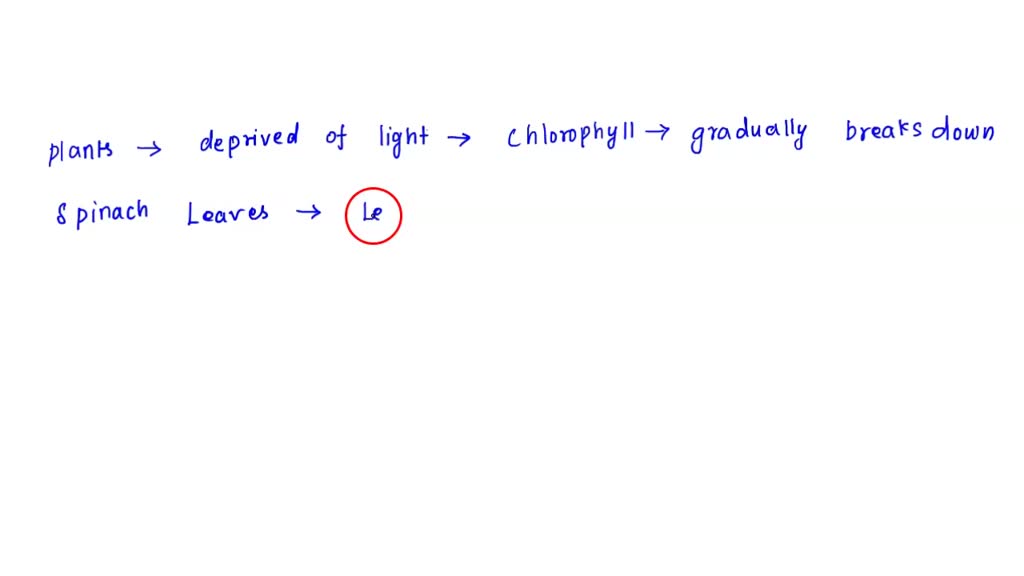 plants → deprived of light → Chlorophyll → gradually breaks down
Spinach Leaves → Le